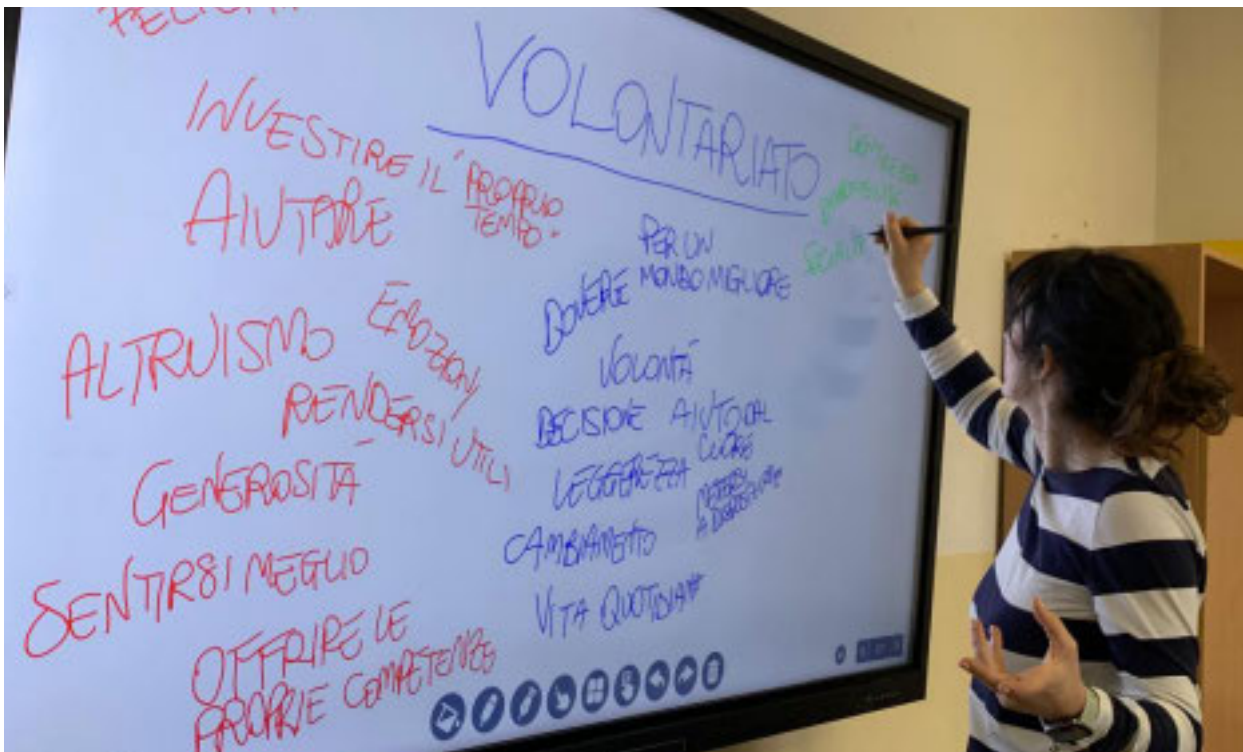 VOLONTARIATO
INVESTIRE IL PROPRIO
TEMPO
AIUTARE
ALTRUISMO
EMOZIONI
RENDERSI UTILI
GENEROSITÀ
SENTIRSI MEGLIO
OFFRIRE LE
PROPRIE COMPETENZE
PER UN
MONDO MIGLIORE
DOVERE
VOLONTÀ
DECISIONE
AIUTO DAL
CUORE
LEGGEREZZA
METTERSI
A DISPOSIZIONE
CAMBIAMETO
VITA QUOTIDIANA